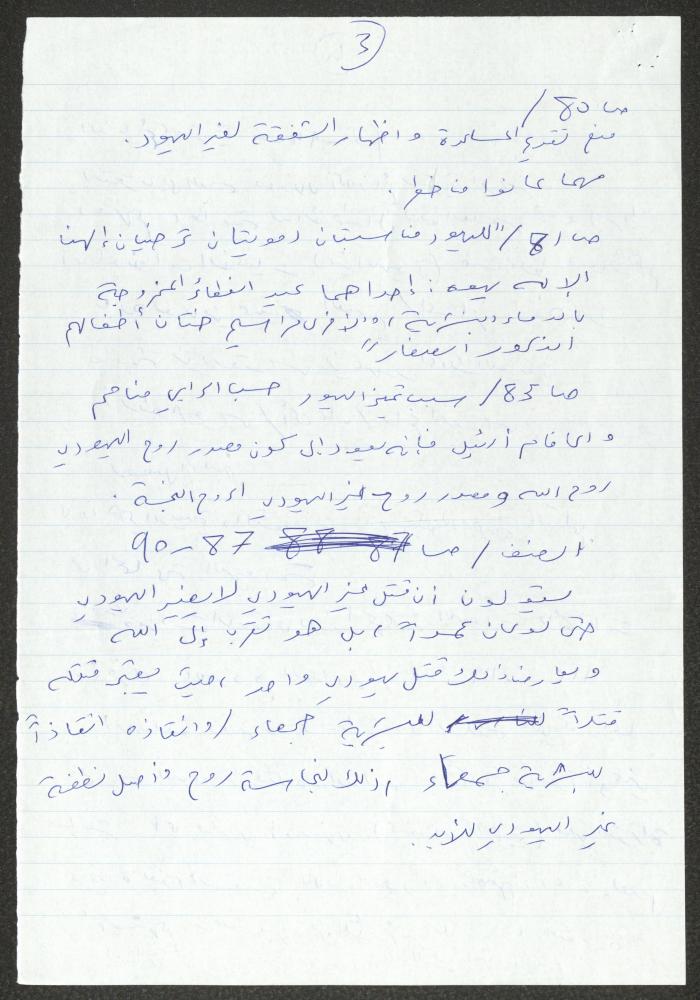 3
ص 80 /
منع تقديم المساعدة و اظهار الشفقة لغير اليهود.
مهما عانوا
ص 81 / "لليهود مناسبتان دمويتان ترضيان إلهنا
الإله يهوه: إحداهما عيد الفطائر الممزوجة
بالدماء البشرية، والاخرى مراسيم ختان أطفالهم
الذكور الصغار"
ص 83 / سبب تميز اليهود حسب الرابي مناحم
و الحاخام أرئيل فإنه يعود إلى كون مصدر روح اليهودي
روح الله ومصدر روح غير اليهودي الروح النجسة.
العنف / ص 87 - 90
يقولون أن قتل غير اليهودي لا يضير اليهودي
حتى لو كان عمداً، بل هو تقرب إلى الله
و يعارض ذلك قتل يهودي واحد، حيث يعتبر قتله
قتلاً للبشرية جمعاء / وانقاذه انقاذاً
للبشرية جمعاء، ذلك لنجاسة روح وأصل نطفة
غير اليهودي للأبد.